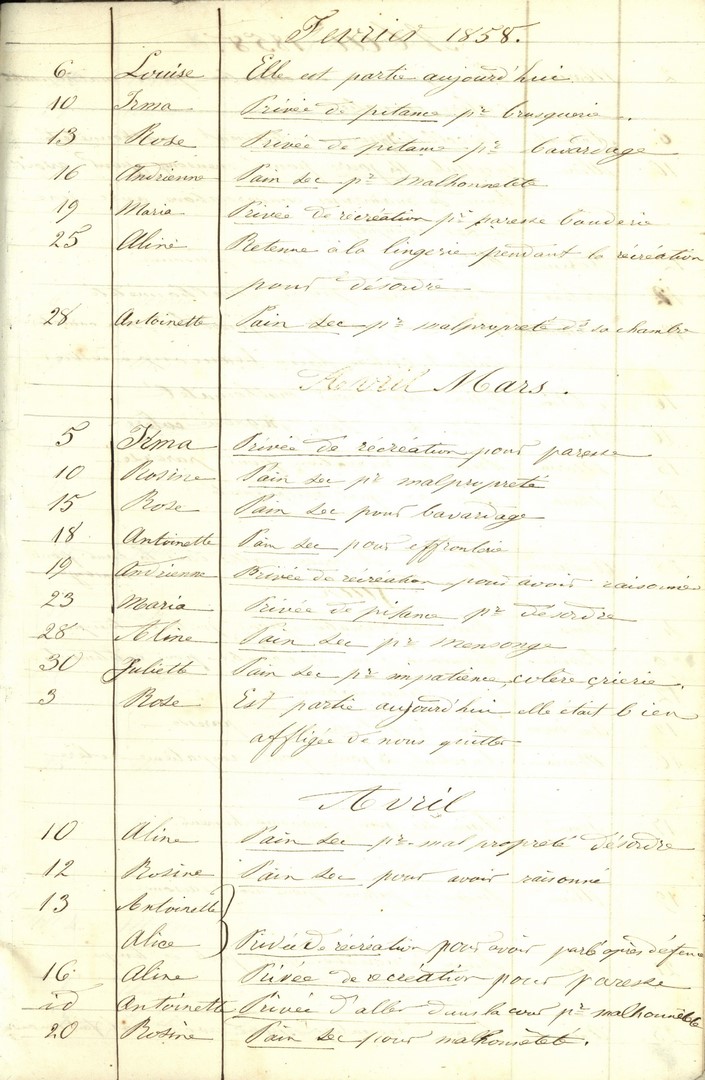 Fevrier 1858.
6 Louise Elle est partie aujourd'hui
10 Irma Privée de pitance pr brusquerie.
13 Rose Privée de pitance pr bavardage
16 Andrienne Pain sec pr malhonnêteté
19 Maria Privée de récréation pr paresse bouderie
25 Aline Retenue à la lingerie pendant la récréation
pour désordre
28 Antoinette Pain sec pr malpropreté ds sa chambre
Avril Mars.
5 Irma Privée de récréation pour paresse
10 Rosine Pain sec pr malpropreté
15 Rose Pain sec pour bavardage
18 Antoinette Pain sec pour effronterie
19 Andrienne Privée de récréation pour avoir raisonné
23 Maria Privée de pitance pr désordre
28 Aline Pain sec pr mensonge
30 Juliette Pain sec pr impatience, colère crierie.
3 Rose Est partie aujourd'hui elle était bien
affligée de nous quitter
Avril
10 Aline Pain sec pr malpropreté désordre
12 Rosine Pain sec pour avoir raisonné
13 Antoinette
Alice Privée de récréation pour avoir parlé après défense
16 Aline Privée de recréation pour paresse
id Antoinette Privée d'aller dans la cour pr malhonnêteté
20 Rosine Pain sec pour malhonnêteté.